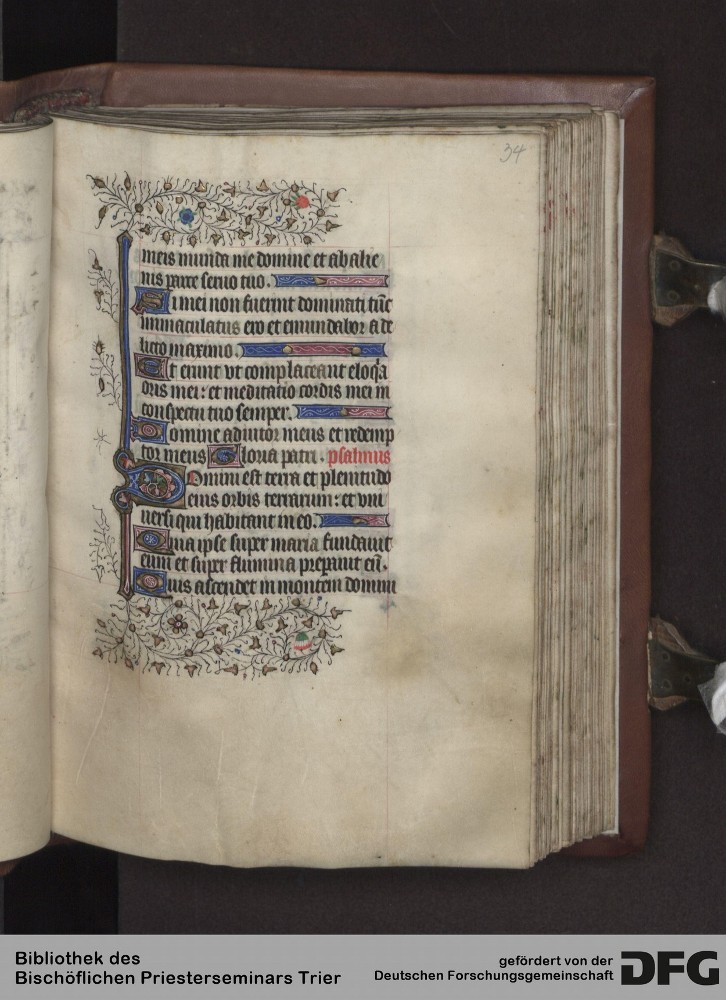 34
meis munda me domine et ab alie
nis parce seruo tuo.
Si mei non fuerint dominati tūc
immaculatus ero et emundabor a de
licto maximo.
Et erunt vt complaceant eloq̄a
oris mei: et meditatio cordis mei in
conspectu tuo semper.
Domine adiutor meus et redemp
tor meus Gloria patri. psalmus
Domini est terra et plenitudo
eius orbis terrarum: et vni
uersi qui habitant in eo.
Quia ipse super maria fundauit
eum et super flumina preparauit eū.
Quis ascendet in montem domini
Bibliothek des
Bischöflichen Priesterseminars Trier
gefördert von der
Deutschen Forschungsgemeinschaft
DFG